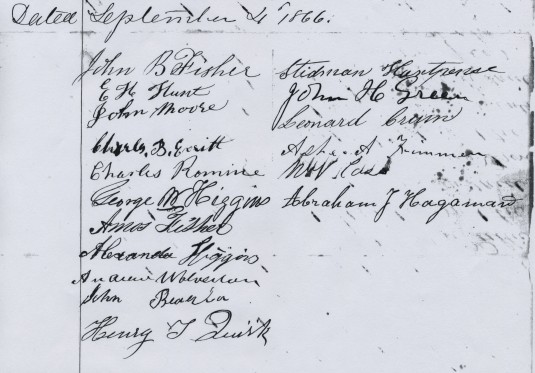 Dated September 4th 1866.
John B Fisher
E H Hunt
John Moore
Charles B. Everitt
Charles Romine
George W Higgins
Amos Fisher
Alexander Higgins
Wolverton
John
Henry T Quirk
Stidman
John H Green
Leonard
Asher A
W V Case
Abraham J Hagaman